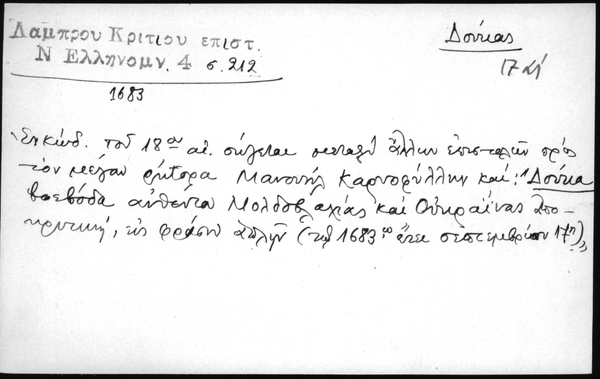 Λαμπρου Κριτιου επιστ.
Ν Ελληνομν. 4 σ. 212
Δούκας
17 α΄
1683
Ἐν κώδ. τοῦ 18ου αἰ. σώζεται μεταξὺ ἄλλων ἐπιστολῶν πρὸς
τὸν μέγαν ῥήτορα Μανουὴλ Καρυοφύλλην καὶ: "Δούκα
βοεβόδα αὐθέντα Μολδοβλαχίας καὶ Οὐκραΐνας ἀπο-
κριτική, εἰς φράσιν ἁπλῆν (τῷ 1683ῳ ἔτει σεπτεμβρίου 17ῃ)"